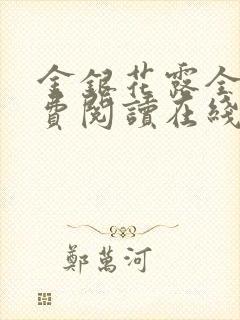 金銀花露全
費閱讀在綫
鄭萬河